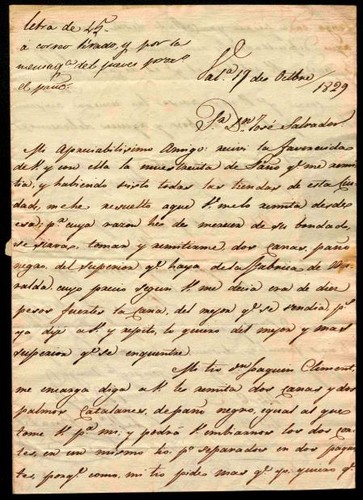 letra de 25
a correo tirado, y por la
mensag.ª del jueves proxº
el paño.
Val.ª 19 de Octbre
1829
S.r D.n José Salvador
Mi Apreciabilisimo Amigo: recivi la favorecida
de V. y con ella la muestresita de Paño q.e me remi
tia, y habiendo visto todas las tiendas de esta Ciu
dad, me he resuelto aque V. me lo remita desde
esa; p.ª cuya razon he de merecer de su bondad,
se sirva, tomar y remitirme dos canas, paño
negro, del superior q.e haya de la fabrica de
ralda cuyo precio segun V. me decia era de diez
pesos fuertes la cana, del mejor q.e se vendia; p.o
ya digo a V. y repito, lo quiero del mejor y mas
superior q.e se encuentre.
Mi tio D.n Joaquin Climent,
me encarga diga a V. le remita dos canas y dos
palmos Catalanes, de paño negro, igual al que
tome V. p.ª mi, y podrá V. embiarnos los dos cor
tes, en un mismo p.o separados en dos paque
tes, porq.e como mi tio pide mas q.e yo, quiero q.e